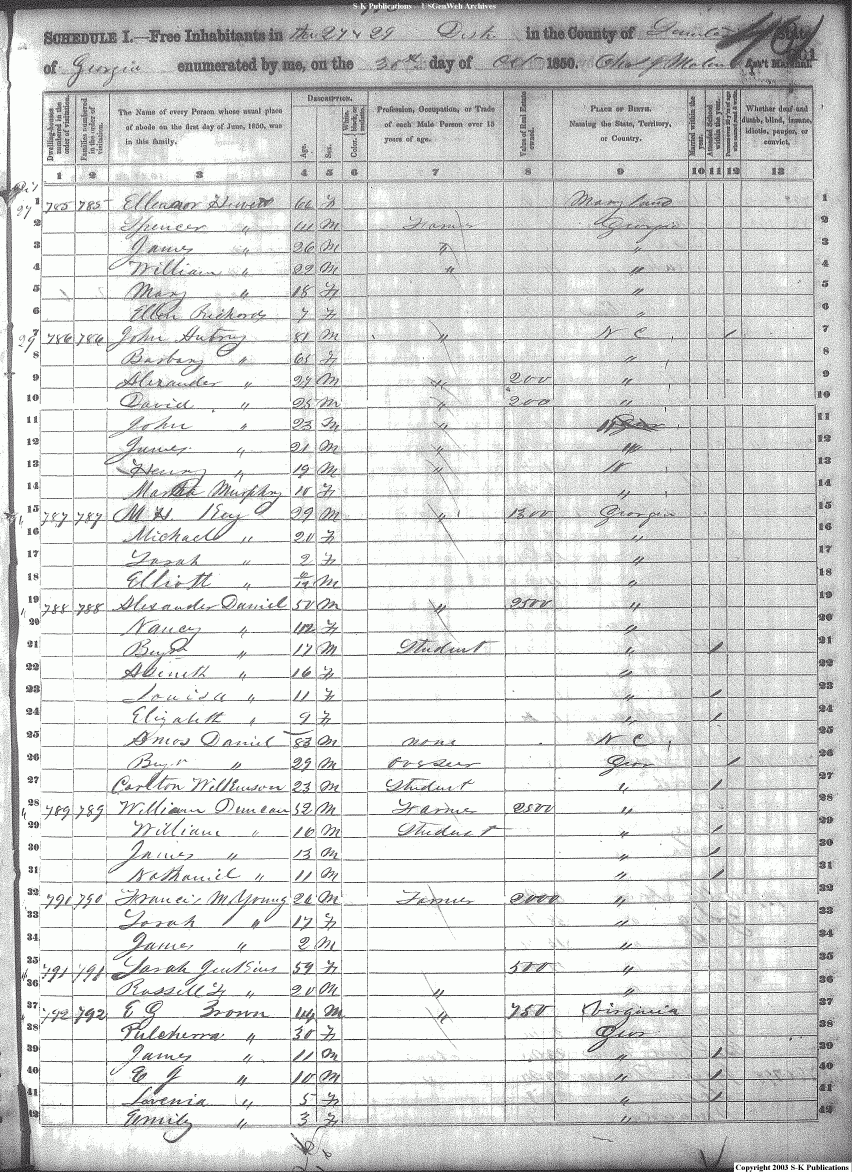 S-K Publications - USGenWeb Archives
SCHEDULE I.—Free Inhabitants in the 27 & 29 Dist in the County of State
of Georgia enumerated by me, on the 30th day of Oct 1850. Ass't Marshal.
Dwelling-houses numbered in the order of visitation. Families numbered in the order of visitation. The Name of every Person whose usual place of abode on the first day of June, 1850, was in this family. DESCRIPTION. Age. Sex. Color, White, black, or mulatto. Profession, Occupation, or Trade of each Male Person over 15 years of age. Value of Real Estate owned. PLACE OF BIRTH. Naming the State, Territory, or Country. Married within the year. Attended School within the year. Persons over 20 y'rs of age who cannot read & write. Whether deaf and dumb, blind, insane, idiotic, pauper, or convict.
1 2 3 4 5 6 7 8 9 10 11 12 13
1 785 785 Elleanor 66 F Maryland 1
2 Spencer " M Farmer Georgia 2
3 James " 26 M " " 3
4 William " 22 M " " 4
5 Mary " 18 F " 5
6 Ellen Richards 7 F " 6
7 786 786 John 81 M " N C / 7
8 Barbary " 65 F " 8
9 Alexander " 27 M " 200 " 9
10 David " 25 M " 200 " 10
11 John " 23 M " 11
12 James " 21 M " " 12
13 Henry " 19 M " 13
14 Martha Murphry 10 F " 14
15 787 787 M H Key 29 M " 1300 Georgia 15
16 Michael " 20 F " 16
17 Sarah " 2 F " 17
18 Elliott " M " 18
19 788 788 Alexander Daniel 50 M " 2500 " 19
20 Nancy " 42 F " 20
21 Benj " 17 M Student " / 21
22 Aseneth " 16 F " 22
23 Louisa " 11 F " / 23
24 Elizabeth " 9 F " / 24
25 Amos Daniel 83 M none N C 25
26 Benj " 29 M Overseer Geor / 26
27 Carlton Wilkinson 23 M Student " / 27
28 789 789 William Duncan 52 M Farmer 2500 " 28
29 William " 16 M Student " / 29
30 James " 13 M " / 30
31 Nathaniel " 11 M " / 31
32 790 790 Francis M Young 26 M Farmer 2000 " 32
33 Sarah " 17 F " 33
34 James " 2 M " 34
35 791 791 Sarah Jenkins 59 F 500 " 35
36 Russell F " 20 M " " 36
37 792 792 E G Brown 44 M " 750 Virginia 37
38 Pulcherra " 30 F Geor 38
39 James " 11 M " / 39
40 E G " 10 M " / 40
41 Lovenia " 5 F " / 41
42 Emily " 3 F " 42
Copyright 2003 S-K Publications